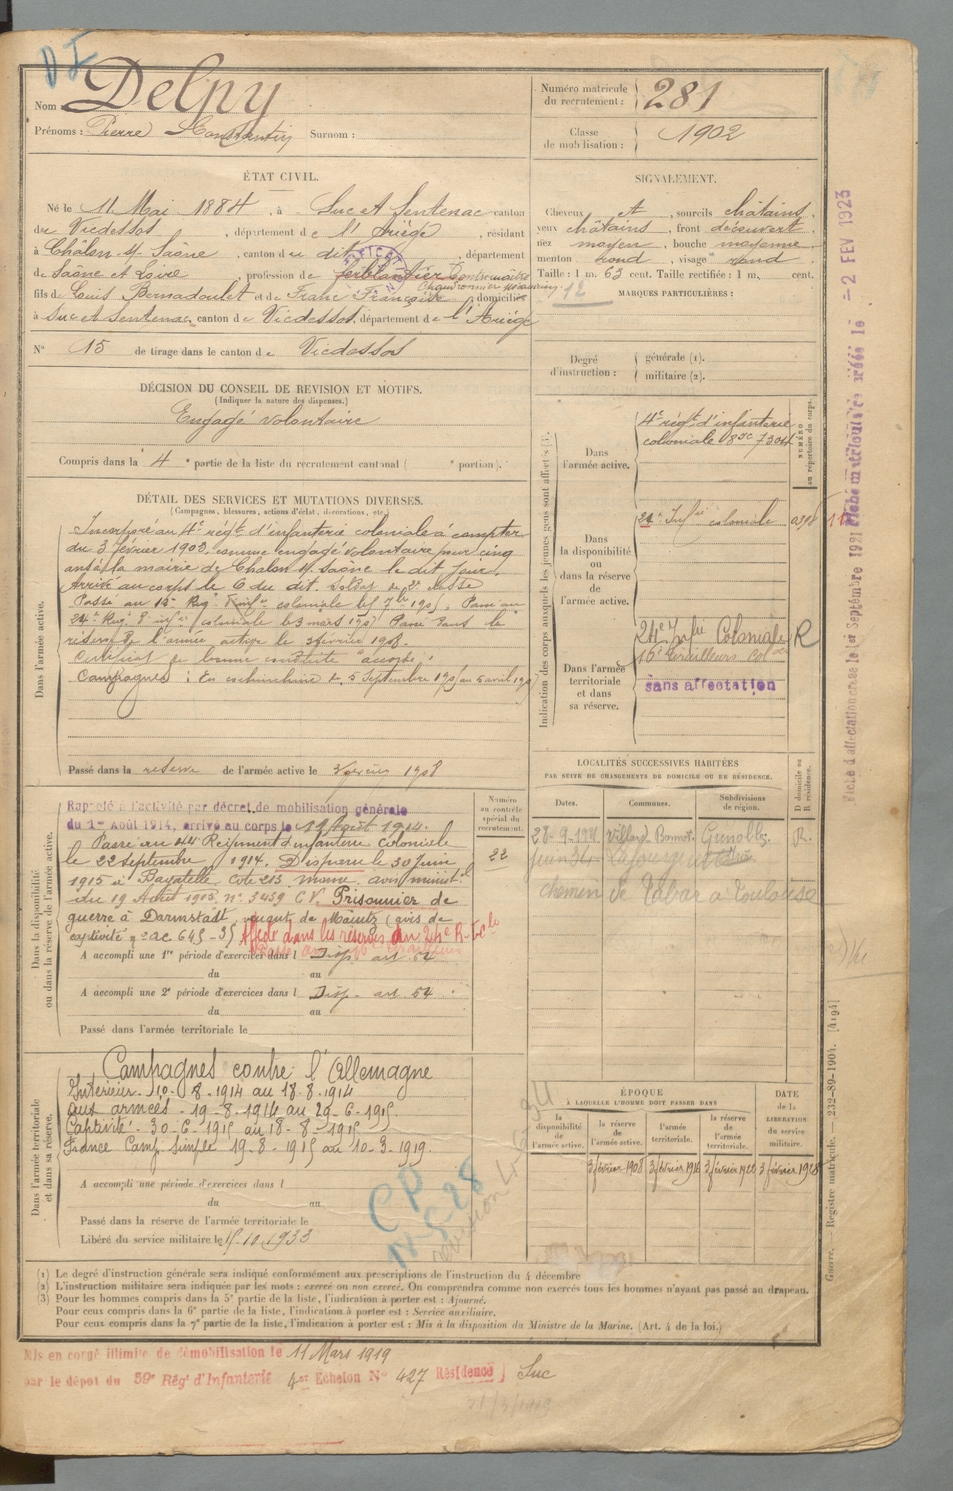 D I
Nom Delpy
Prénoms : Pierre Constantin Surnom :
Numéro matricule du recrutement : 281
Classe de mobilisation : 1902
ÉTAT CIVIL.
Né le 11 Mai 1884, à Suc et Sentenac canton
du Vicdessos, département de l'Ariège, résidant
à Châlon s/ Saône, canton du dit, département
de Saône et Loire, profession de ferblantier Contremaître
Chaudronnier
fils de Louis Bernadoulet et de Franc Françoise, domiciliés
à Suc et Sentenac, canton de Vicdessos, département de l'Ariège
N° 15 de tirage dans le canton de Vicdessos
SIGNALEMENT.
Cheveux et, sourcils châtains,
yeux châtains, front découvert,
nez moyen, bouche moyenne,
menton rond, visage rond.
Taille : 1 m. 63 cent. Taille rectifiée : 1 m. cent.
12
MARQUES PARTICULIÈRES :
Degré d'instruction : générale (1).
militaire (2).
DÉCISION DU CONSEIL DE REVISION ET MOTIFS.
(Indiquer la nature des dispenses.)
Engagé volontaire
Compris dans la 4e partie de la liste du recrutement cantonal ( e portion).
DÉTAIL DES SERVICES ET MUTATIONS DIVERSES.
(Campagnes, blessures, actions d'éclat, décorations, etc.)
Dans l'armée active.
Incorporé au 4e régt d'infanterie coloniale à compter
du 3 février 1903, comme engagé volontaire pour cinq
ans à la mairie de Chalon s/ Saône le dit jour.
Arrivé au corps le 6 du dit. Soldat de 2e classe
Passé au Régt coloniale Passé au
24e Régt d'infie coloniale le 3 mars Passé dans la
réserve de l'armée active le 3 février 1908.
Certificat de bonne conduite "accordé".
Campagnes : En cochinchine 5 Septembre au 5 avril
Passé dans la réserve de l'armée active le 3 février 1908
Indication des corps auxquels les jeunes gens sont affectés (3).
NUMÉRO au répertoire du corps.
Dans l'armée active.
4e régt d'infanterie
coloniale 7304
Dans la disponibilité ou dans la réserve de l'armée active.
24e Infie coloniale
Dans l'armée territoriale et dans sa réserve.
24e Infie Coloniale R
16e Tirailleurs Colx
sans affectation
Dans la disponibilité ou dans la réserve de l'armée active.
Rappelé à l'activité par décret de mobilisation générale
du 1er Août 1914, arrivé au corps le 19 Août 1914.
Passé au 44 Régiment d'infanterie Coloniale
le 22 septembre 1914. Disparu le 30 Juin
1915 à Bagatelle Cote 213 Marne avis ministel
du 19 Août 1915 n° 3459 CV. Prisonnier de
guerre à Darmstadt, venant de Mainz (avis de
captivité n° ac 645-35
Affecté dans les réserves au 24e R. I. Cle
A accompli une 1re période d'exercices dans l Disp. art. 54
du au
A accompli une 2e période d'exercices dans l Disp. art. 54
du au
Passé dans l'armée territoriale le
Numéro au contrôle spécial du recrutement.
22
LOCALITÉS SUCCESSIVES HABITÉES
PAR SUITE DE CHANGEMENTS DE DOMICILE OU DE RÉSIDENCE.
Dates. Communes. Subdivisions de région. D domicile ou R résidence.
Villard Bonnot Grenoble R.
chemin de Tabar à Toulouse
Dans l'armée territoriale et dans sa réserve.
Campagnes contre l'Allemagne
Intérieur - 10-8-1914 au 18-8-1914
aux armées - 19-8-1914 au 29-6-1915
Captivité - 30-6-1915 au 18-8-1915
France Camp. Simple 19-8-1915 au 10-3-1919.
A accompli une période d'exercices dans l
du au
Passé dans la réserve de l'armée territoriale le
Libéré du service militaire le 15-10-1933
CP
28
ÉPOQUE
À LAQUELLE L'HOMME DOIT PASSER DANS
la disponibilité de l'armée active. la réserve de l'armée active. l'armée territoriale. la réserve de l'armée territoriale.
DATE de la LIBÉRATION du service militaire.
3 février 1908 3 février 1914 3 février 1920 3 février 1928
(1) Le degré d'instruction générale sera indiqué conformément aux prescriptions de l'instruction du 4 décembre
(2) L'instruction militaire sera indiquée par les mots : exercé ou non exercé. On comprendra comme non exercés tous les hommes n'ayant pas passé au drapeau.
(3) Pour les hommes compris dans la 5e partie de la liste, l'indication à porter est : Ajourné.
Pour ceux compris dans la 6e partie de la liste, l'indication à porter est : Service auxiliaire.
Pour ceux compris dans la 7e partie de la liste, l'indication à porter est : Mis à la disposition du Ministre de la Marine. (Art. 4 de la loi.)
Mis en congé illimité de démobilisation le 11 Mars 1919
par le dépot du 59e Régt d'Infanterie 4er Échelon N° 427 Résidence) Suc
Fiche d'affectation créée le 1er Septembre 1921 Fiche matriculaire créée le - 2 FEV 1923
Guerre. — Registre matricule. — 232-89-1904. [4194]